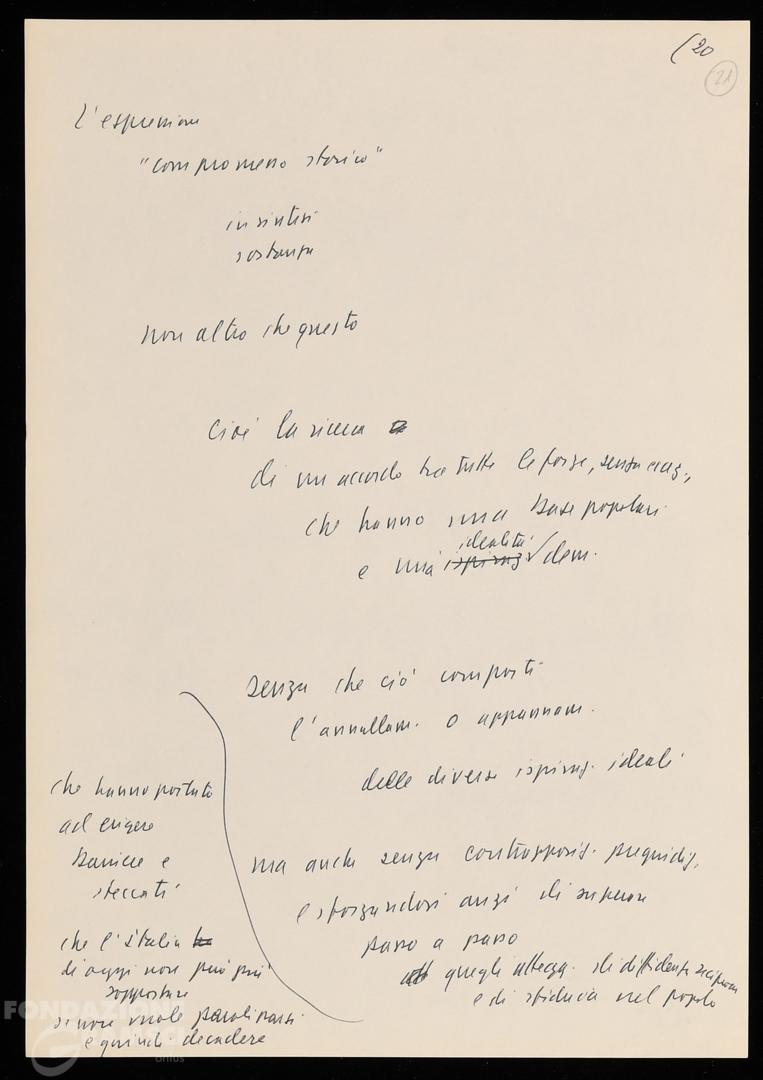 (20
21
L'espressione
"compromesso storico"
in sintesi
sostanza
non altro che questo
cioè la ricerca
di un accordo tra tutte le forze, senza esag.,
che hanno una base popolare
idealità
e una ispiraz. dem.
senza che ciò comporti
l'annullam. o appannam.
delle diverse ispiraz. ideali
ma anche senza contrapposiz. pregiudiz.
e sforzandosi anzi di superare
passo a passo
quegli attegg. di diffidenza reciproca
e di sfiducia nel popolo
che hanno portato
ad erigere
barriere e
steccati
che l'Italia
di oggi non può più
sopportare
se non vuole paralizzarsi
e quindi decadere
FONDAZIONE
GRAMSCI
onlus